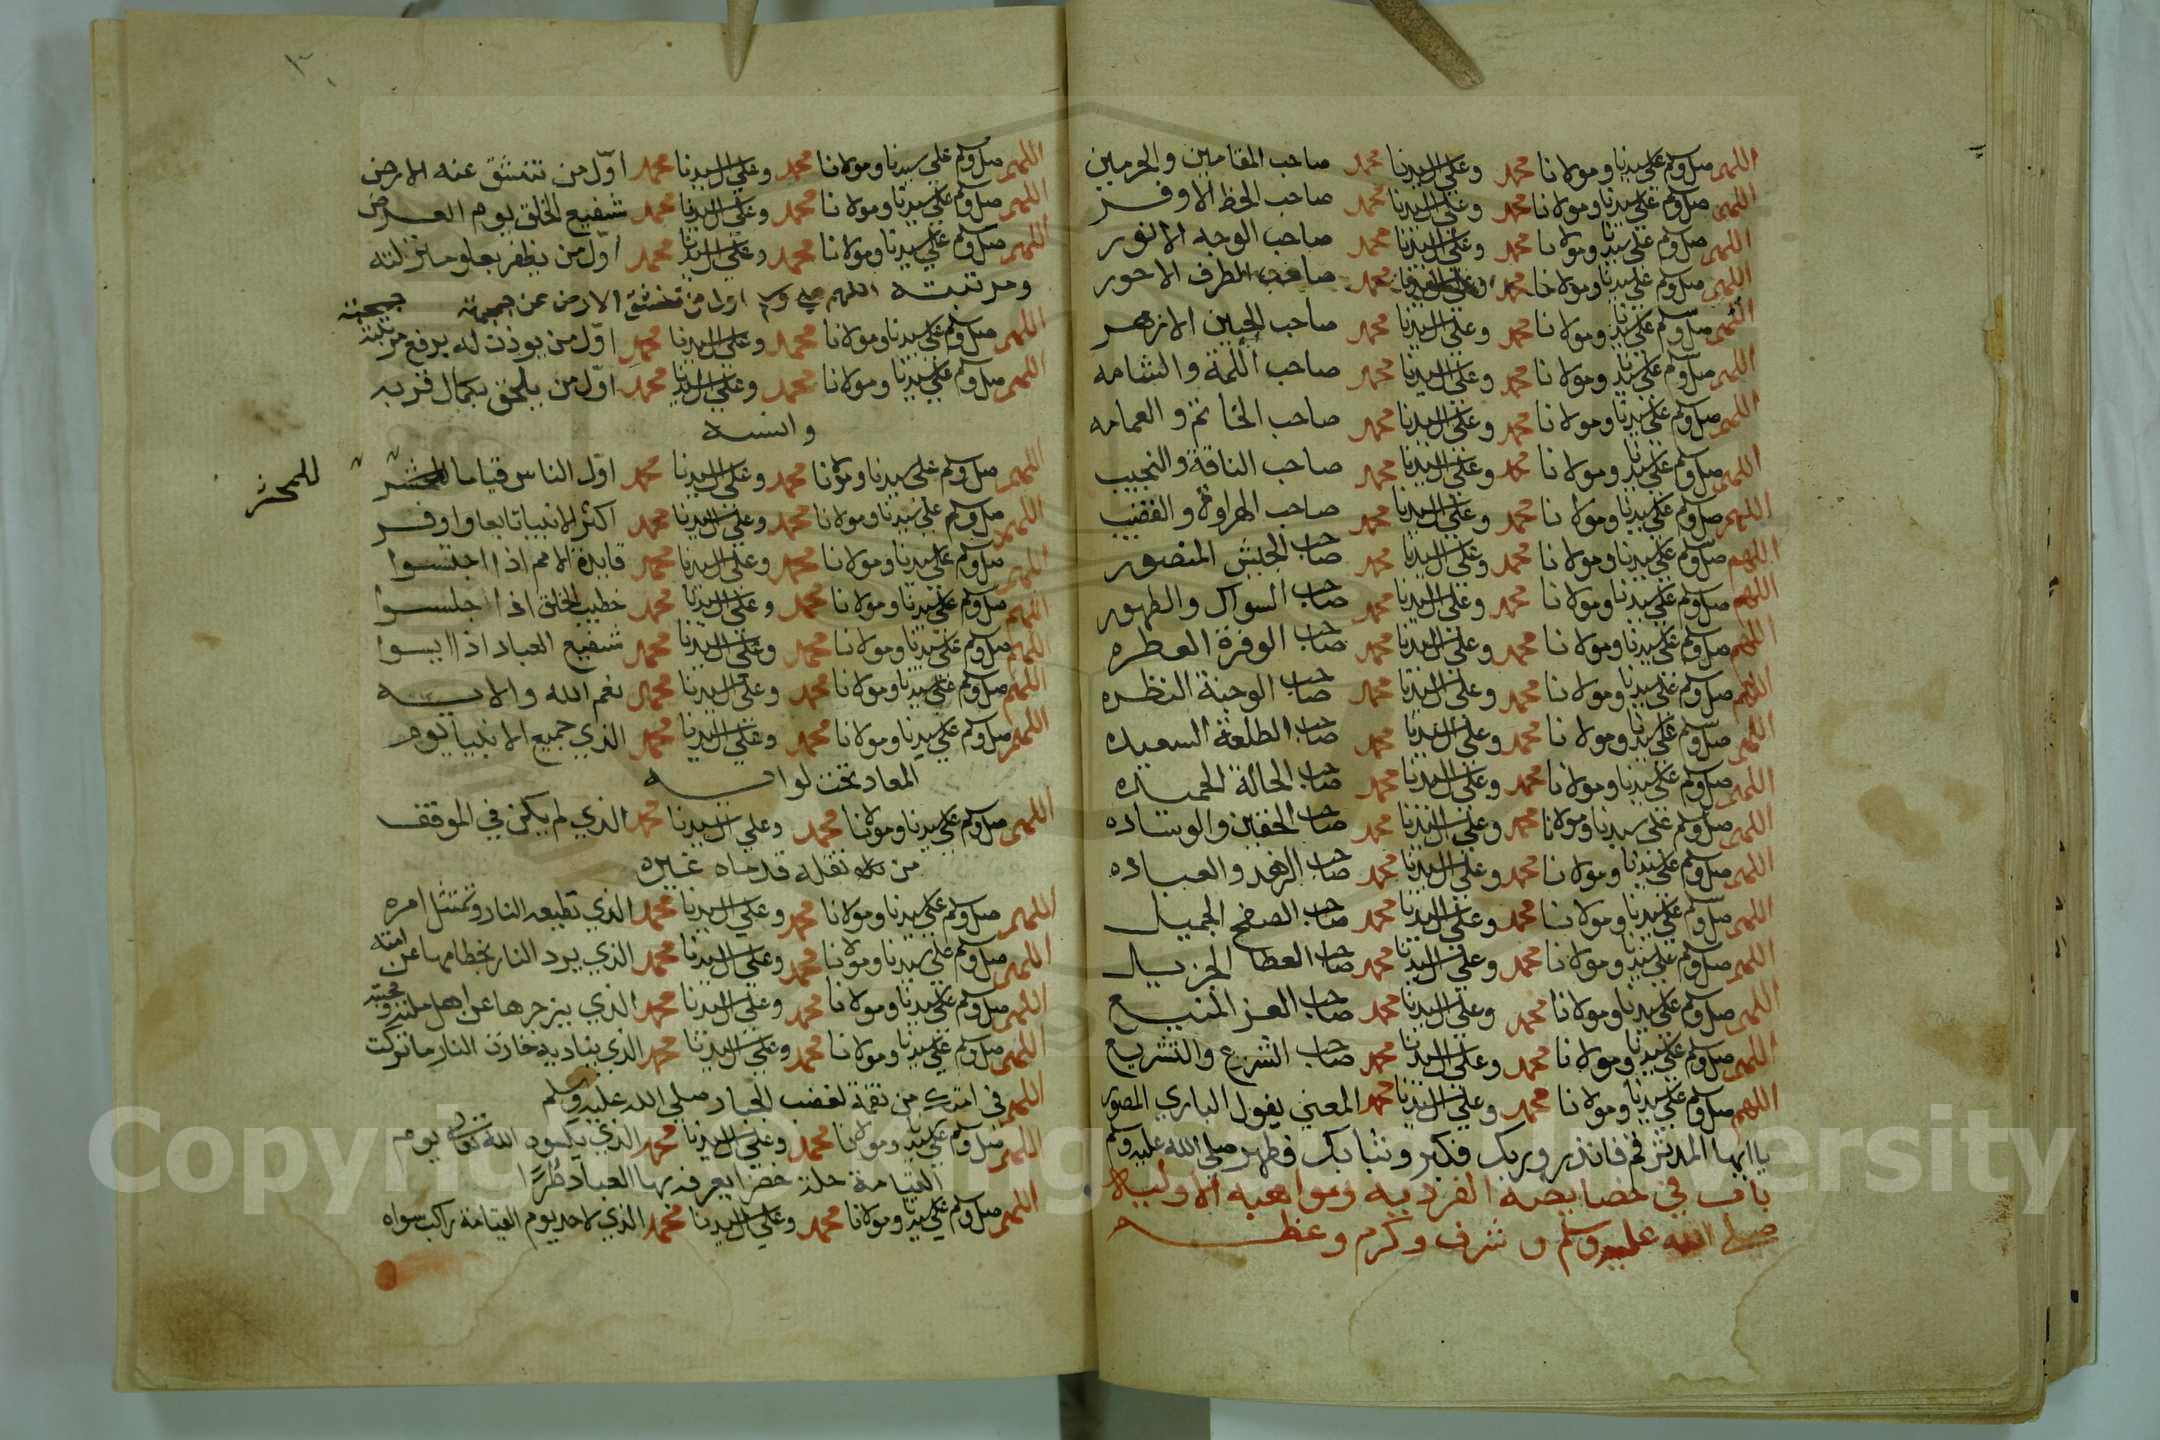 اللهم صل وسلم على سيدنا ومولانا محمد وعلى آل سيدنا محمد صاحب المقامين والحرمين
اللهم صل وسلم على سيدنا ومولانا محمد وعلى آل سيدنا محمد صاحب الحظ الاوفر
اللهم صل وسلم على سيدنا ومولانا محمد وعلى آل سيدنا محمد صاحب الوجه الانور
اللهم صل وسلم على سيدنا ومولانا محمد وعلى آل سيدنا محمد صاحب الطرف الاحور
اللهم صل وسلم على سيدنا ومولانا محمد وعلى آل سيدنا محمد صاحب الجبين الازهر
اللهم صل وسلم على سيدنا ومولانا محمد وعلى آل سيدنا محمد صاحب اللمة والشامه
اللهم صل وسلم على سيدنا ومولانا محمد وعلى آل سيدنا محمد صاحب الخاتم والعمامه
اللهم صل وسلم على سيدنا ومولانا محمد وعلى آل سيدنا محمد صاحب الناقة والنجيب
اللهم صل وسلم على سيدنا ومولانا محمد وعلى آل سيدنا محمد صاحب الهراوة والقضيب
اللهم صل وسلم على سيدنا ومولانا محمد وعلى آل سيدنا محمد صاحب الجيش المنصور
اللهم صل وسلم على سيدنا ومولانا محمد وعلى آل سيدنا محمد صاحب السواك والطهور
اللهم صل وسلم على سيدنا ومولانا محمد وعلى آل سيدنا محمد صاحب الوفرة العطره
اللهم صل وسلم على سيدنا ومولانا محمد وعلى آل سيدنا محمد صاحب الوجنة النظره
اللهم صل وسلم على سيدنا ومولانا محمد وعلى آل سيدنا محمد صاحب الطلعة السعيده
اللهم صل وسلم على سيدنا ومولانا محمد وعلى آل سيدنا محمد صاحب الحالة الحميده
اللهم صل وسلم على سيدنا ومولانا محمد وعلى آل سيدنا محمد صاحب الخفين والوساده
اللهم صل وسلم على سيدنا ومولانا محمد وعلى آل سيدنا محمد صاحب الزهد والعباده
اللهم صل وسلم على سيدنا ومولانا محمد وعلى آل سيدنا محمد صاحب الصفح الجميل
اللهم صل وسلم على سيدنا ومولانا محمد وعلى آل سيدنا محمد صاحب العطا الجزيل
اللهم صل وسلم على سيدنا ومولانا محمد وعلى آل سيدنا محمد صاحب العز المنيع
اللهم صل وسلم على سيدنا ومولانا محمد وعلى آل سيدنا محمد صاحب الشرع والتشريع
اللهم صل وسلم على سيدنا ومولانا محمد وعلى آل سيدنا محمد المعني بقول الباري المصور
يا ايها المدثر قم فانذر وربك فكبر وثيابك فطهر صلى الله عليه وسلم
باب في خصايصه الفردية ومواهبه الاولية
صلى الله عليه وسلم وشرف وكرم وعظم
اللهم صل وسلم على سيدنا ومولانا محمد وعلى آل سيدنا محمد اول من تنشق عنه الارض
اللهم صل وسلم على سيدنا ومولانا محمد وعلى آل سيدنا محمد شفيع الخلق يوم العرض
اللهم صل وسلم على سيدنا ومولانا محمد وعلى آل سيدنا محمد اول من يظفر بعلو منزلته
ومرتبته اللهم صل وسلم اول من تنشق الارض عن جمجمته
اللهم صل وسلم على سيدنا ومولانا محمد وعلى آل سيدنا محمد اول من يوذن له برفع مرتبته
اللهم صل وسلم على سيدنا ومولانا محمد وعلى آل سيدنا محمد اول من يلحق بكمال قربه
وانسه
اللهم صل وسلم على سيدنا ومولانا محمد وعلى آل سيدنا محمد اول الناس قياما للمحشر
للمحشر
اللهم صل وسلم على سيدنا ومولانا محمد وعلى آل سيدنا محمد اكثر الانبيا تابعا واوفر
اللهم صل وسلم على سيدنا ومولانا محمد وعلى آل سيدنا محمد قايد الامم اذا
اللهم صل وسلم على سيدنا ومولانا محمد وعلى آل سيدنا محمد خطيب الخلق اذا جلسوا
اللهم صل وسلم على سيدنا ومولانا محمد وعلى آل سيدنا محمد شفيع العباد اذا ايسوا
اللهم صل وسلم على سيدنا ومولانا محمد وعلى آل سيدنا محمد نعم الله والايه
اللهم صل وسلم على سيدنا ومولانا محمد وعلى آل سيدنا محمد الذي جميع الانبيا يوم
المعاد تحت لوايه
اللهم صل وسلم على سيدنا ومولانا محمد وعلى آل سيدنا محمد الذي لم يكن في الموقف
من نقله قدماه غيره
اللهم صل وسلم على سيدنا ومولانا محمد وعلى آل سيدنا محمد الذي تطيعه النار وتمتثل امره
اللهم صل وسلم على سيدنا ومولانا محمد وعلى آل سيدنا محمد الذي يرد النار بخطامها عن امته
اللهم صل وسلم على سيدنا ومولانا محمد وعلى آل سيدنا محمد الذي يزجرها عن اهل ملته ومحبته
اللهم صل وسلم على سيدنا ومولانا محمد وعلى آل سيدنا محمد الذي يناديه خازن النار ما تركت
في امتك من نقمة لغضب الجبار صلى الله عليه وسلم
اللهم صل وسلم على سيدنا ومولانا محمد وعلى آل سيدنا محمد الذي يكسوه الله تعالى يوم
القيامة حلة خضرا يعرفه بها العباد طرا
اللهم صل وسلم على سيدنا ومولانا محمد وعلى آل سيدنا محمد الذي لا احد يوم القيامة راكب سواه
Copyright © King Saud University